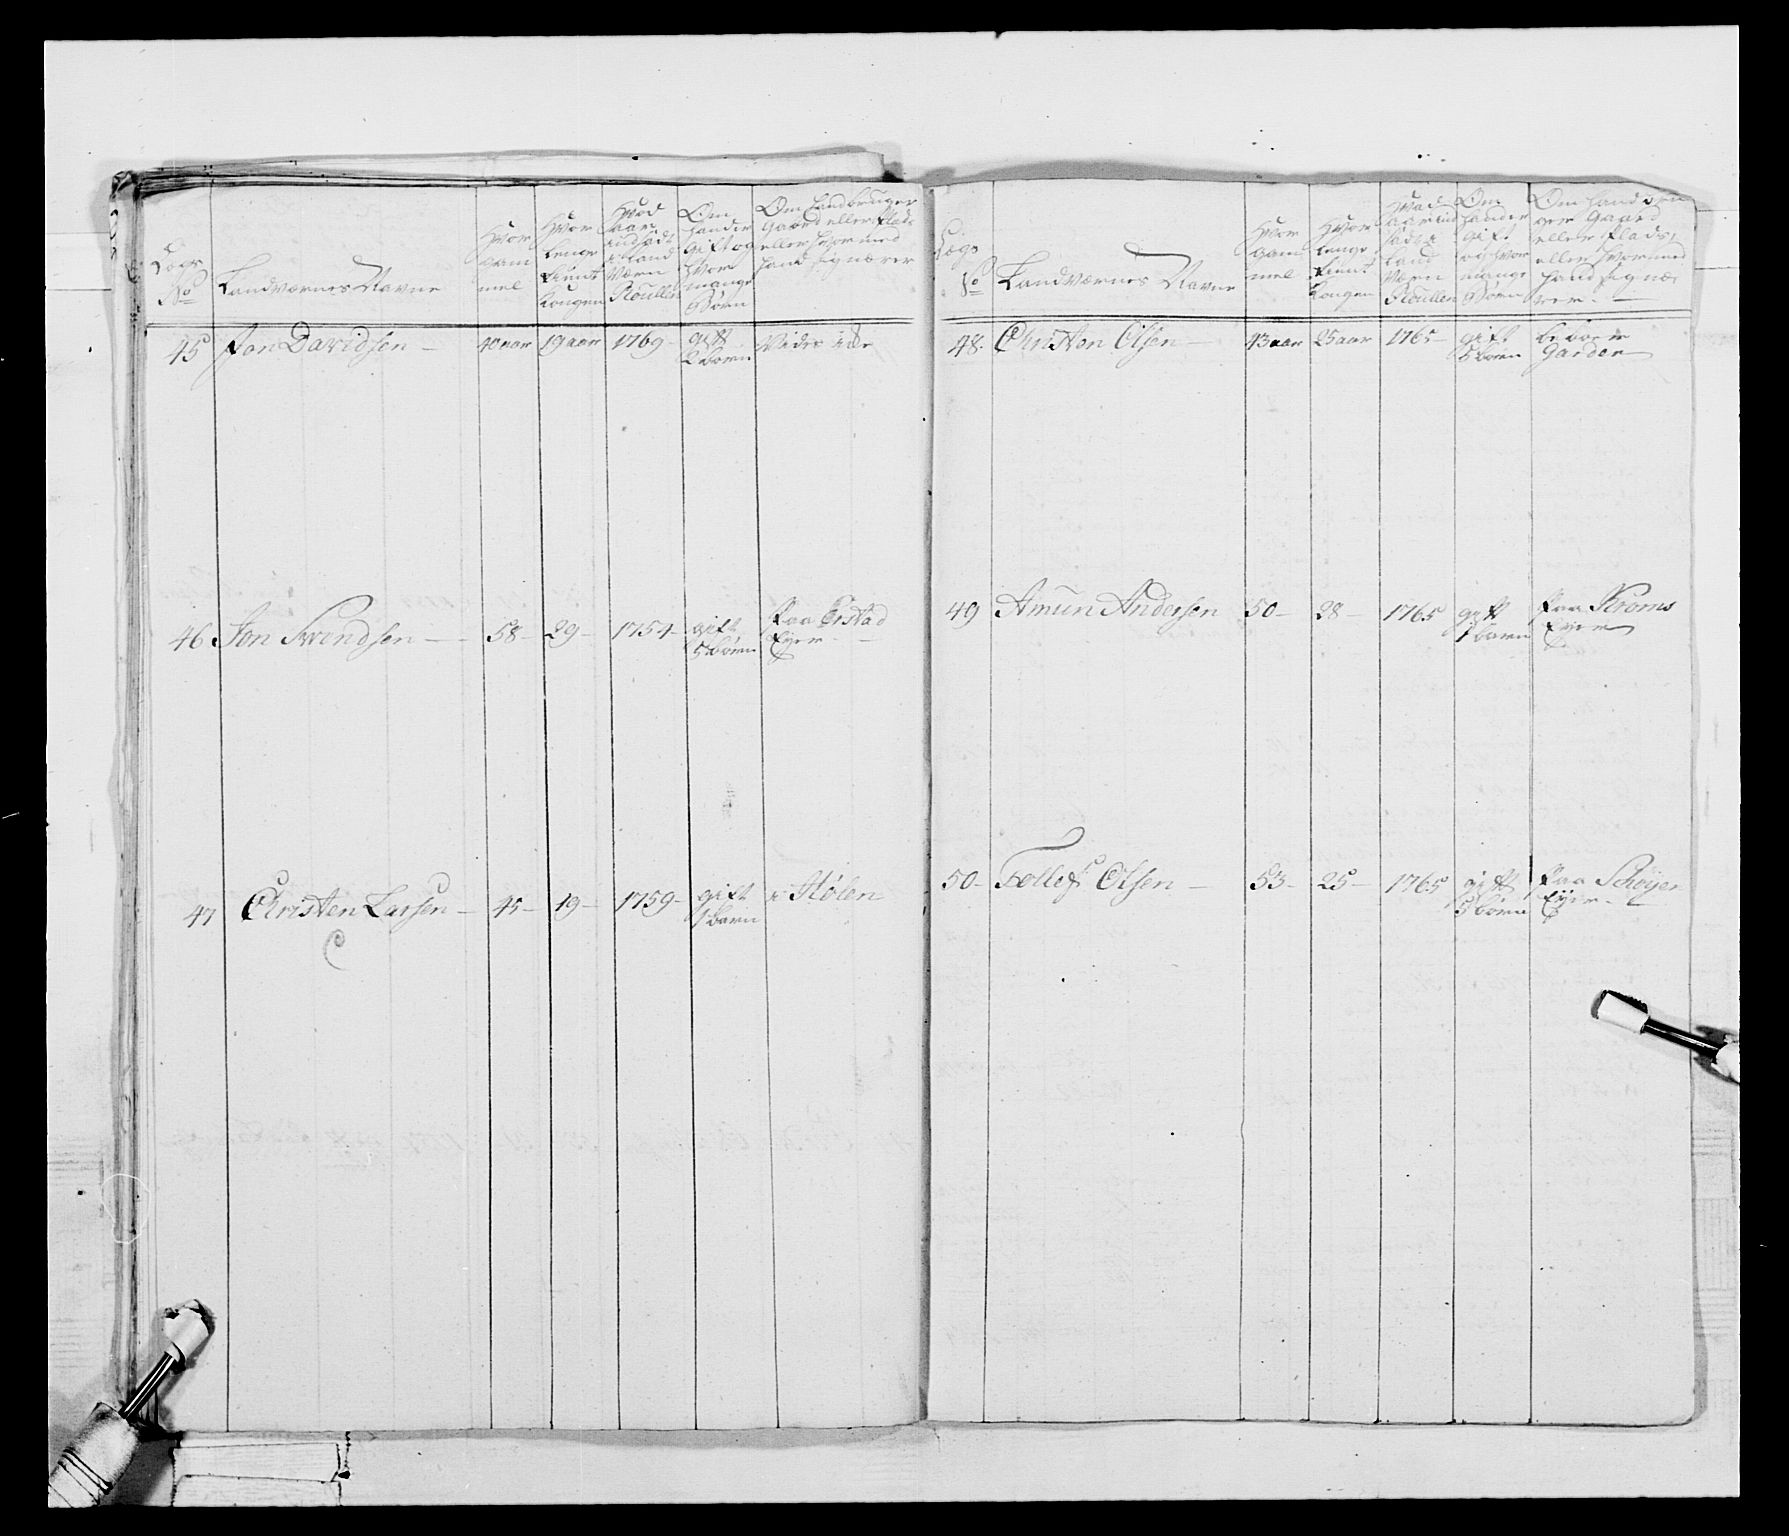 Legs No
Landværnes Navne
Hvor gam mel
Hvor lenge tient Kongen
Hvad aar indsadt i Land Værn Roullen
Om hand er gift og hvor mange Børn
Om hand bruger gaard eller plads eller hvormed hand sig nærer
45 Jon Davidsen 40 aar 19 aar 1769 gift 2 børn
46 Jon Svendsen 58 29 1754 gift 5 børn paa Erstad Eyer
47 Christen Larsen 45 19 1759 gift 1 barn i Hølen
Legs No
Landværnes Navne
Hvor gam mel
Hvor lenge tient Kongen
Hvad aar ind sadt i Land Værn Roullen
Om hand er gift og hvor mange Børn
Om hand bruger gaard eller plads, eller hvormed hand sig næ rer
48 Christen Olsen 43 aar 25 aar 1765 gift 5 børn beboer Garder
49 Amun Andersen 50 28 1765 gift 1 barn paa Kroms Eyer
50 Tollef Olsen 53 25 1765 gift 5 børn paa Schøyen Eyer